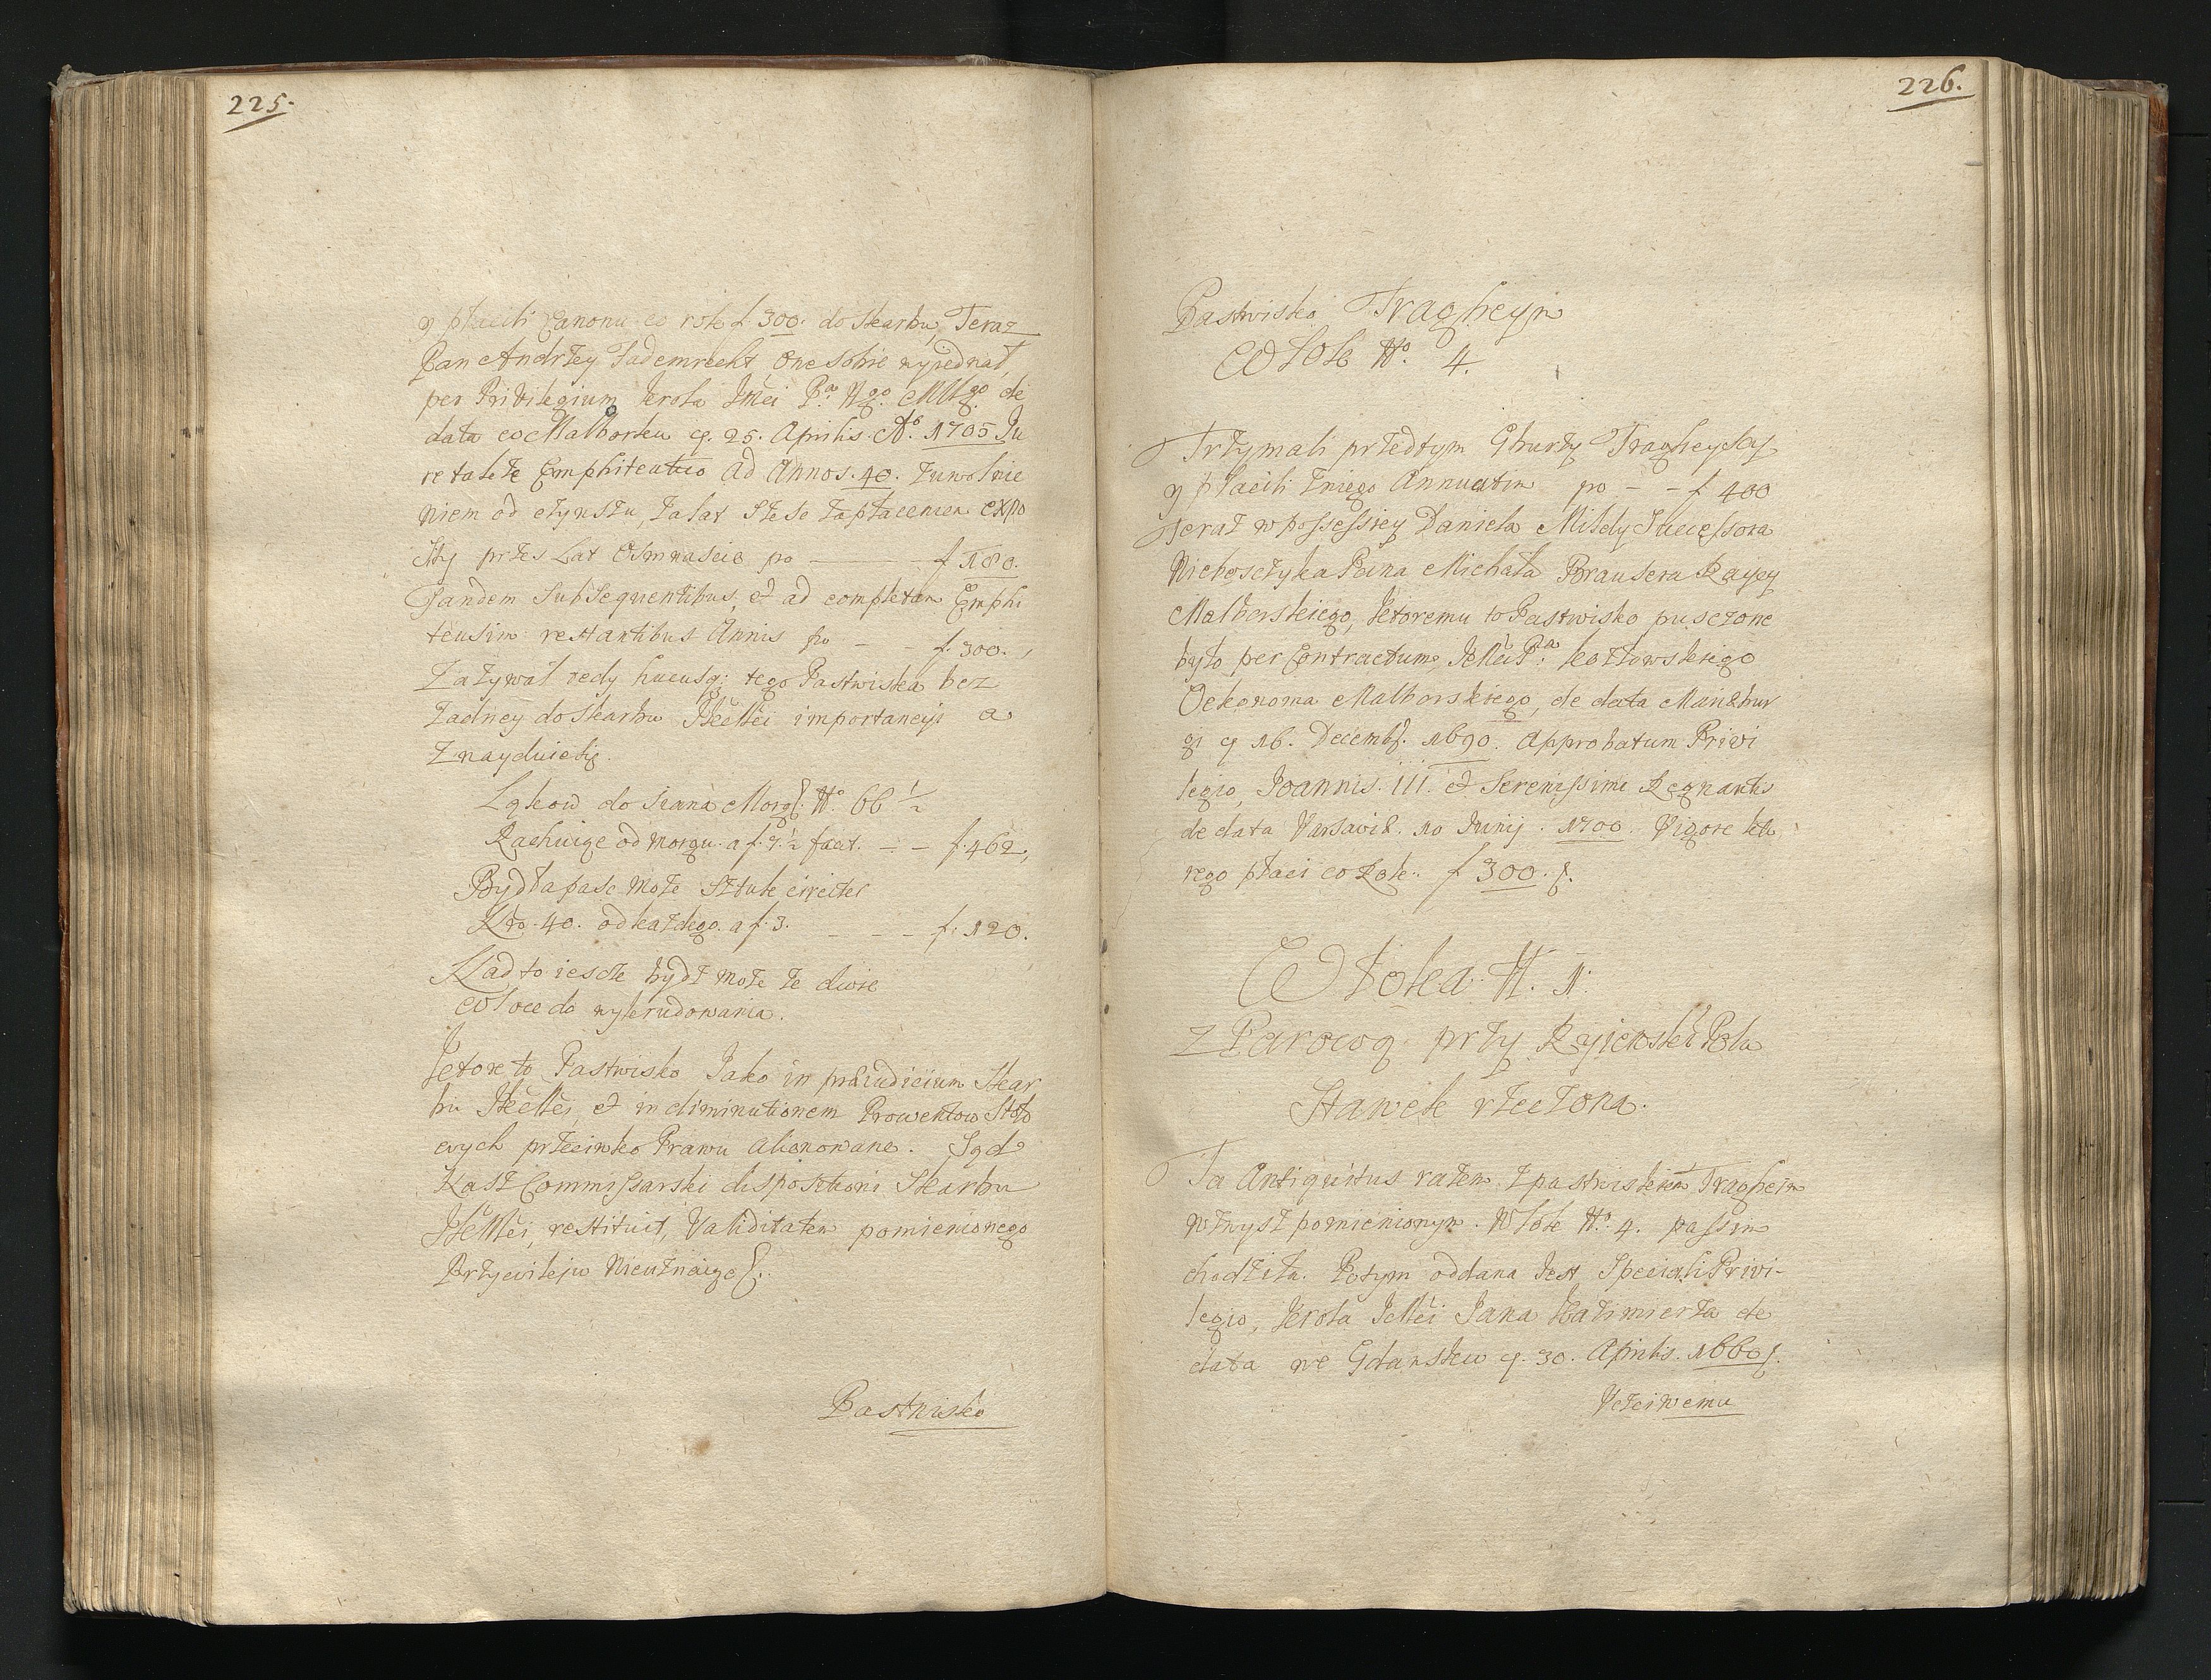 225.
y płacili Canonu co rok f 300. do Skarbu, Teraz
Pan Andrzey Jademrecht, One sobie wyjednał,
per Privilegium Krola JMći Pa. Ngo. Młgo. de
data w Malborku q. 25. Aprilis Ao. 1705 Ju
re taleze Emphiteutico ad Annos. 40. zuwolnie
niem od czynszu, za lat Szesc zapłaceniem expo
Sty przes Lat Osmnascie po — f 180.
Tandem Subsequentibus, et ad completam Emphi
teusim restantibus Annis po - - f. 300.,
Zazywał tedy hucusq; tego Pastwiska bez
zadney do Skarbu JKMći importancyi a
Znayduie się.
Łąkow do siana Morg: No. 66 1/2
Rachuiąc od Morgu. a f. 7 1/2 facit. - - f. 462.,
Bydła pasc moze Sztuk circiter
Nro. 40. od kazdego. a f. 3. - - - f. 120.
Nad to iescze bydz moze ze dwie
włoce do wykrudowania.
Ktore to Pastwisko Jako in præiudicium Skar
bu JKMći, et in diminutionem Prowentow Stoło
wych przeciwko Prawu alienowane. Sąd
Nasz Commissarski dispositioni Skarbu
JKMći, restituit, Validitatem pomienionego
Przywileju Nieuznaiąc.
Pastwisko
226.
Pastwisko Tragheyn
Włok No. 4.
Trzymali przedtym Gburzy Tragheyscy
y płacili zniego Annuatim po - - f 400
Teraz w possessiey Daniela Mildy Successora
Nieboszczyka Pana Michała Brausera Raycy
Malborskiego, ktoremu to Pastwisko pusczone
było, per Contractum, JeMći Pa. Kozłowskiego
Oekonoma Malborskiego, de data Marienbur
gi q 16. Decemb. 1690. Approbatum Privi
legio, Joannis. III. et Serenissimi Regnantis
de data Varsaviæ. 10 Junij. 1700. Vigore kto
rego płaci co Rok. f 300.
Włoka N. 1.
z Parową przy Kyienski Polu
Stawek rzeczona.
Ta Antiquitus razem z pastwiskiem Tragheim
wzwysz pomienionym. Włok No. 4. passim
chodziła. Potym oddana Jest Speciali Privi-
legio, Krola JeMći Jana Kazimierza de
data we Gdansku q. 30. Aprilis. 1660.
Uczciwemu